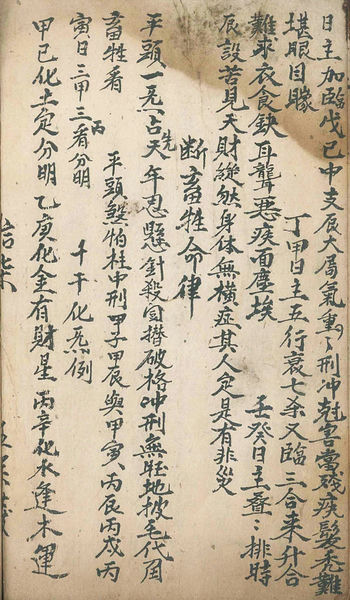 日主加臨戊己中支辰大局氣重々刑冲尅害當殘疾髮禿難
堪眼目矇 丁甲日主五行衰七杀又臨三合來升合
難求衣食缺耳聾悪疾面塵埃 壬癸日主叠々排時
辰設若見天財絲然身体無橫疾其人定是有非災
断畜牲命律
平頭一杀占先天年忌懸針殺自撍破格冲刑無旺地披毛代角
畜牲看 平頭殺怕柱中刑甲子甲辰與甲寅丙辰丙戌丙
寅日三甲三丙看分明 十干化杀例
甲己化土定分明乙庚化金有財星丙辛化水逢木運